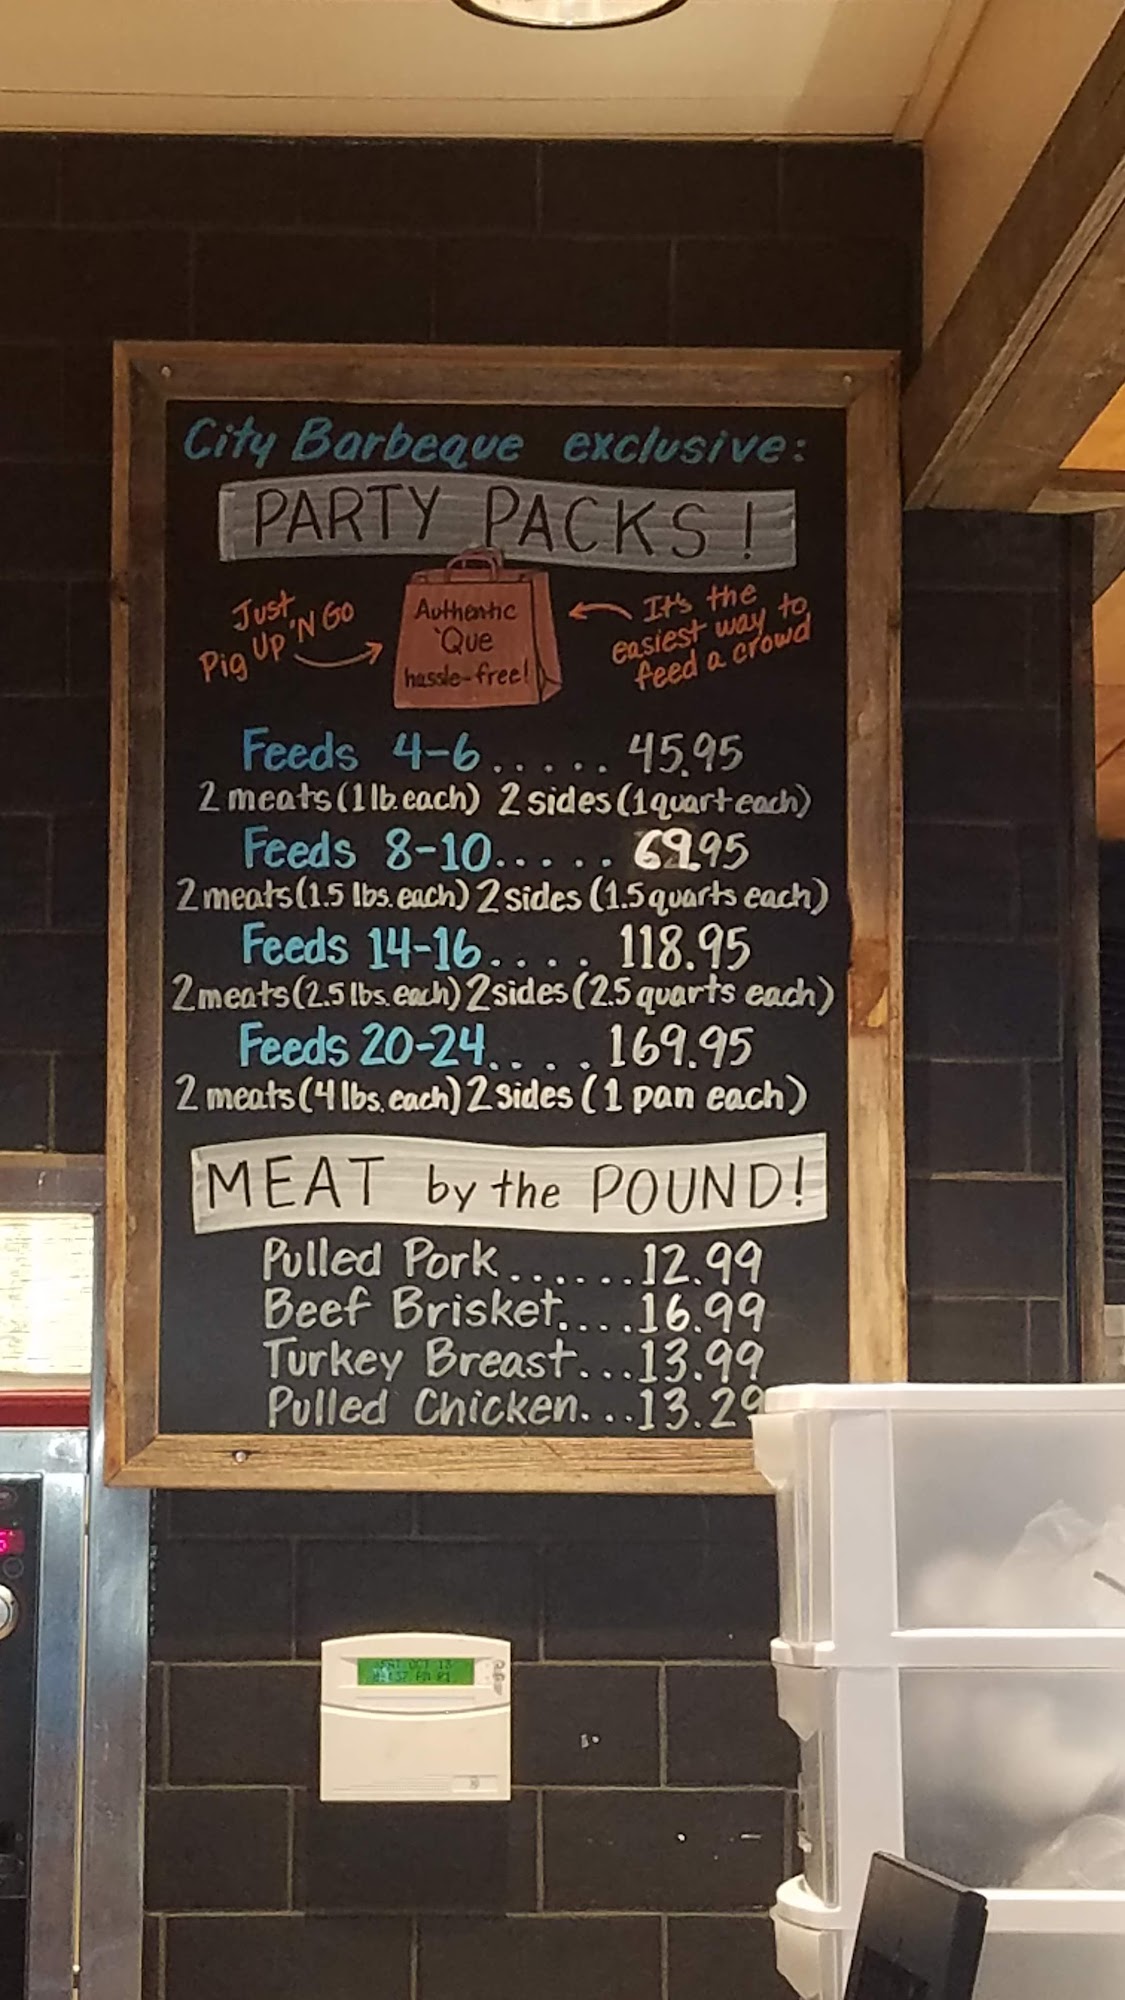 City Barbeque exclusive:
PARTY PACKS!
Just
Pig Up 'N Go
Authentic
'Que
hassle-free!
It's the
easiest way to
feed a crowd
Feeds 4-6..... 45.95
2 meats (1 lb. each) 2 sides (1 quart each)
Feeds 8-10..... 69.95
2 meats (1.5 lbs. each) 2 sides (1.5 quarts each)
Feeds 14-16.... 118.95
2 meats (2.5 lbs. each) 2 sides (2.5 quarts each)
Feeds 20-24.... 169.95
2 meats (4 lbs. each) 2 sides (1 pan each)
MEAT by the POUND!
Pulled Pork......12.99
Beef Brisket....16.99
Turkey Breast...13.99
Pulled Chicken...13.29